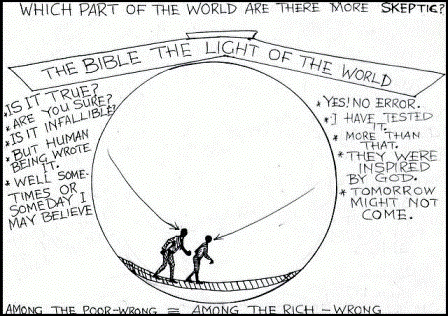 WHICH PART OF THE WORLD ARE THERE MORE SKEPTIC?
THE BIBLE THE LIGHT OF THE WORLD
*IS IT TRUE?
*ARE YOU SURE?
*IS IT INFALLIBLE?
*BUT HUMAN
BEING WROTE
IT.
*WELL SOME-
TIMES OR
SOMEDAY I
MAY BELIEVE
*YES! NO ERROR.
*I HAVE TESTED
IT.
* MORE THAN
THAT.
*THEY WERE
INSPIRED
BY GOD.
*TOMORROW
MIGHT NOT
COME.
AMONG THE POOR-WRONG = AMONG THE RICH-WRONG